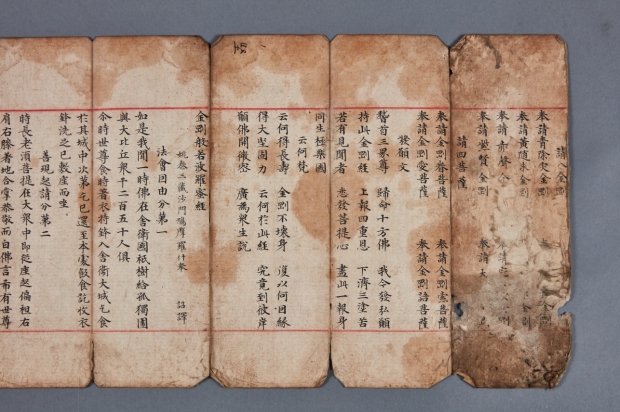 請 金剛
奉請青除災金剛 金剛
奉請黃隨求金剛 金剛
奉請赤聲 奉請 剛
奉請紫賢金剛 奉請大
請四菩薩
奉請金剛眷菩薩 奉請金剛索菩薩
奉請金剛愛菩薩 奉請金剛語菩薩
後願文
稽首三界尊 歸命十方佛 我今發弘願
持此金剛經 上報四重恩 下濟三塗苦
若有見聞者 悉發菩提心 盡此一報身
同生極樂國
云何梵
云何得長壽 金剛不壞身 復以何因緣
得大堅固力 云何於此經 究竟到彼岸
願佛開微密 廣為眾生說
金剛般若波羅蜜經
姚秦三藏沙門鳩摩羅什奉 詔譯
法會因由分第一
如是我聞一時佛在舍衛國祇樹給孤獨園
與大比丘眾千二百五十人俱
爾時世尊食時著衣持鉢入舍衛大城乞食
於其城中次第乞已還至本處飯食訖收衣
鉢洗足已敷座而坐
善現起請分第二
時長老須菩提在大眾中即從座起偏袒右
肩右膝著地合掌恭敬而白佛言希有世尊